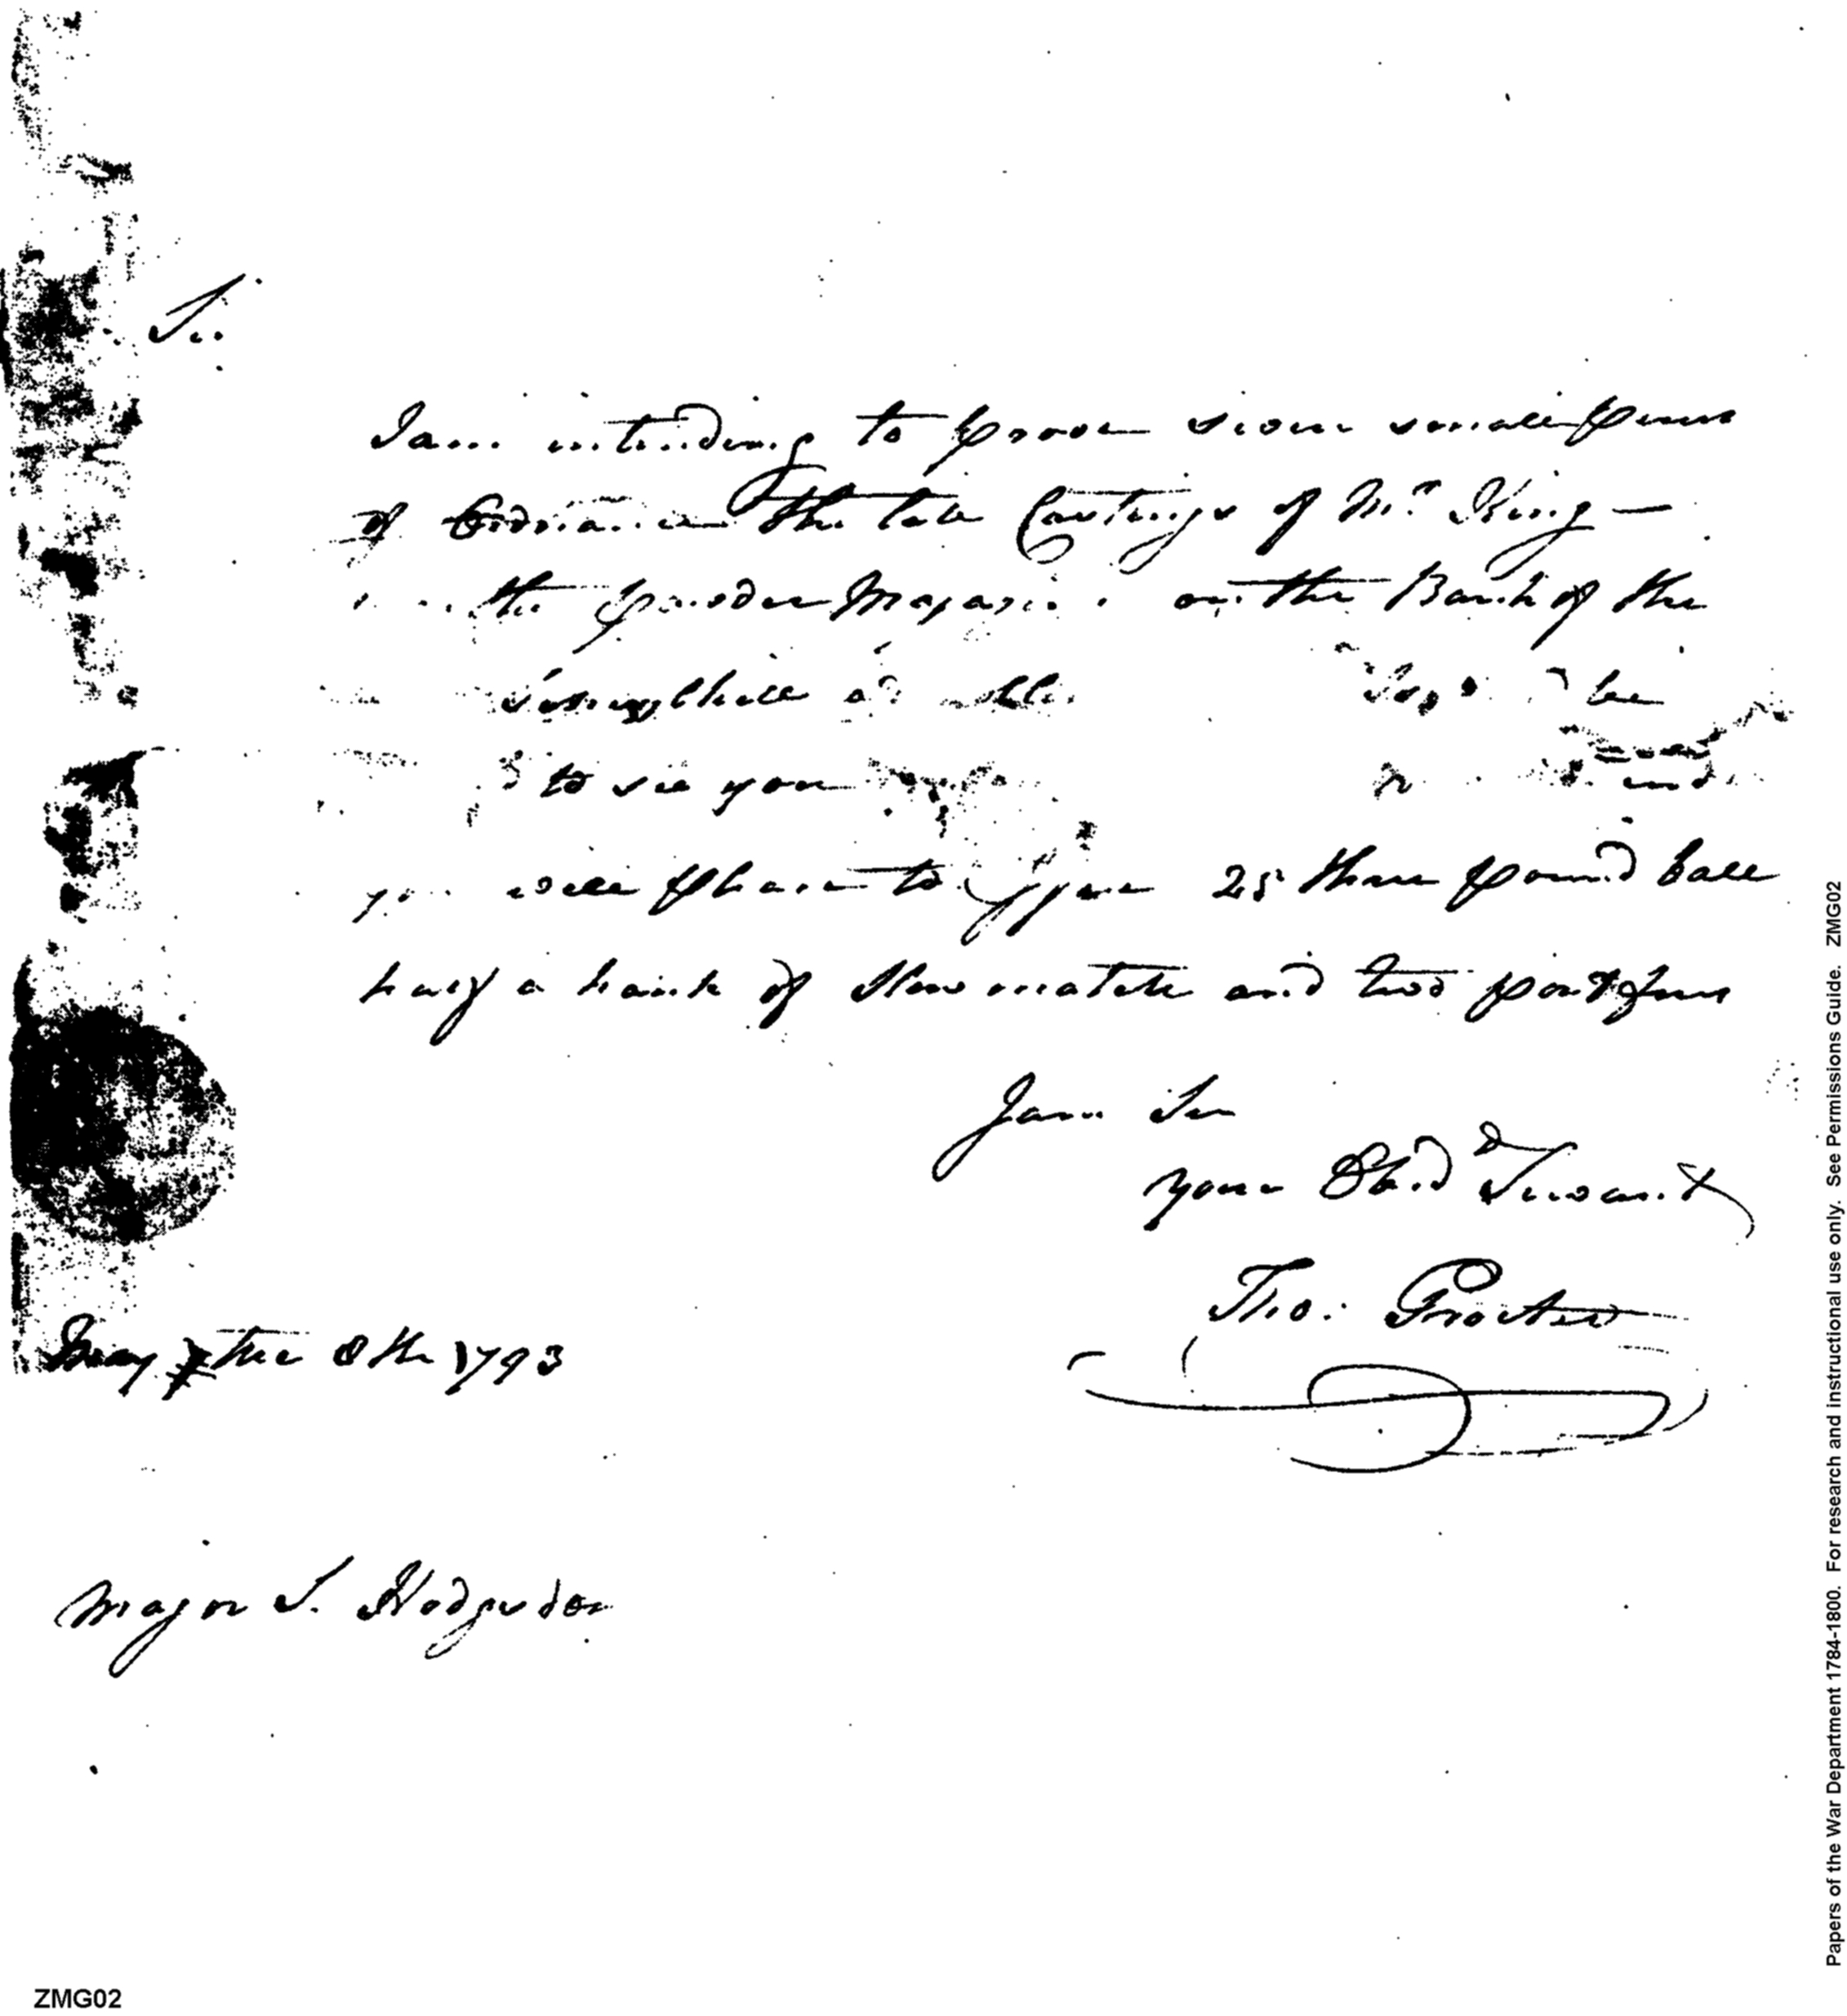 Sir
I am intending to prove seven small peices
of the late Castings of Mr. King —
the powder Magazine on the Bank of the
to see you
you will please to 25 three pound ball
half a hank of Slow match and two portfires
I am Sir
your Obed Servant
Tho: Procter
May the 8th 1793
Major S. Hodgsdon
ZMG02
Papers of the War Department 1784-1800. For research and instructional use only. See Permissions Guide. ZMG02